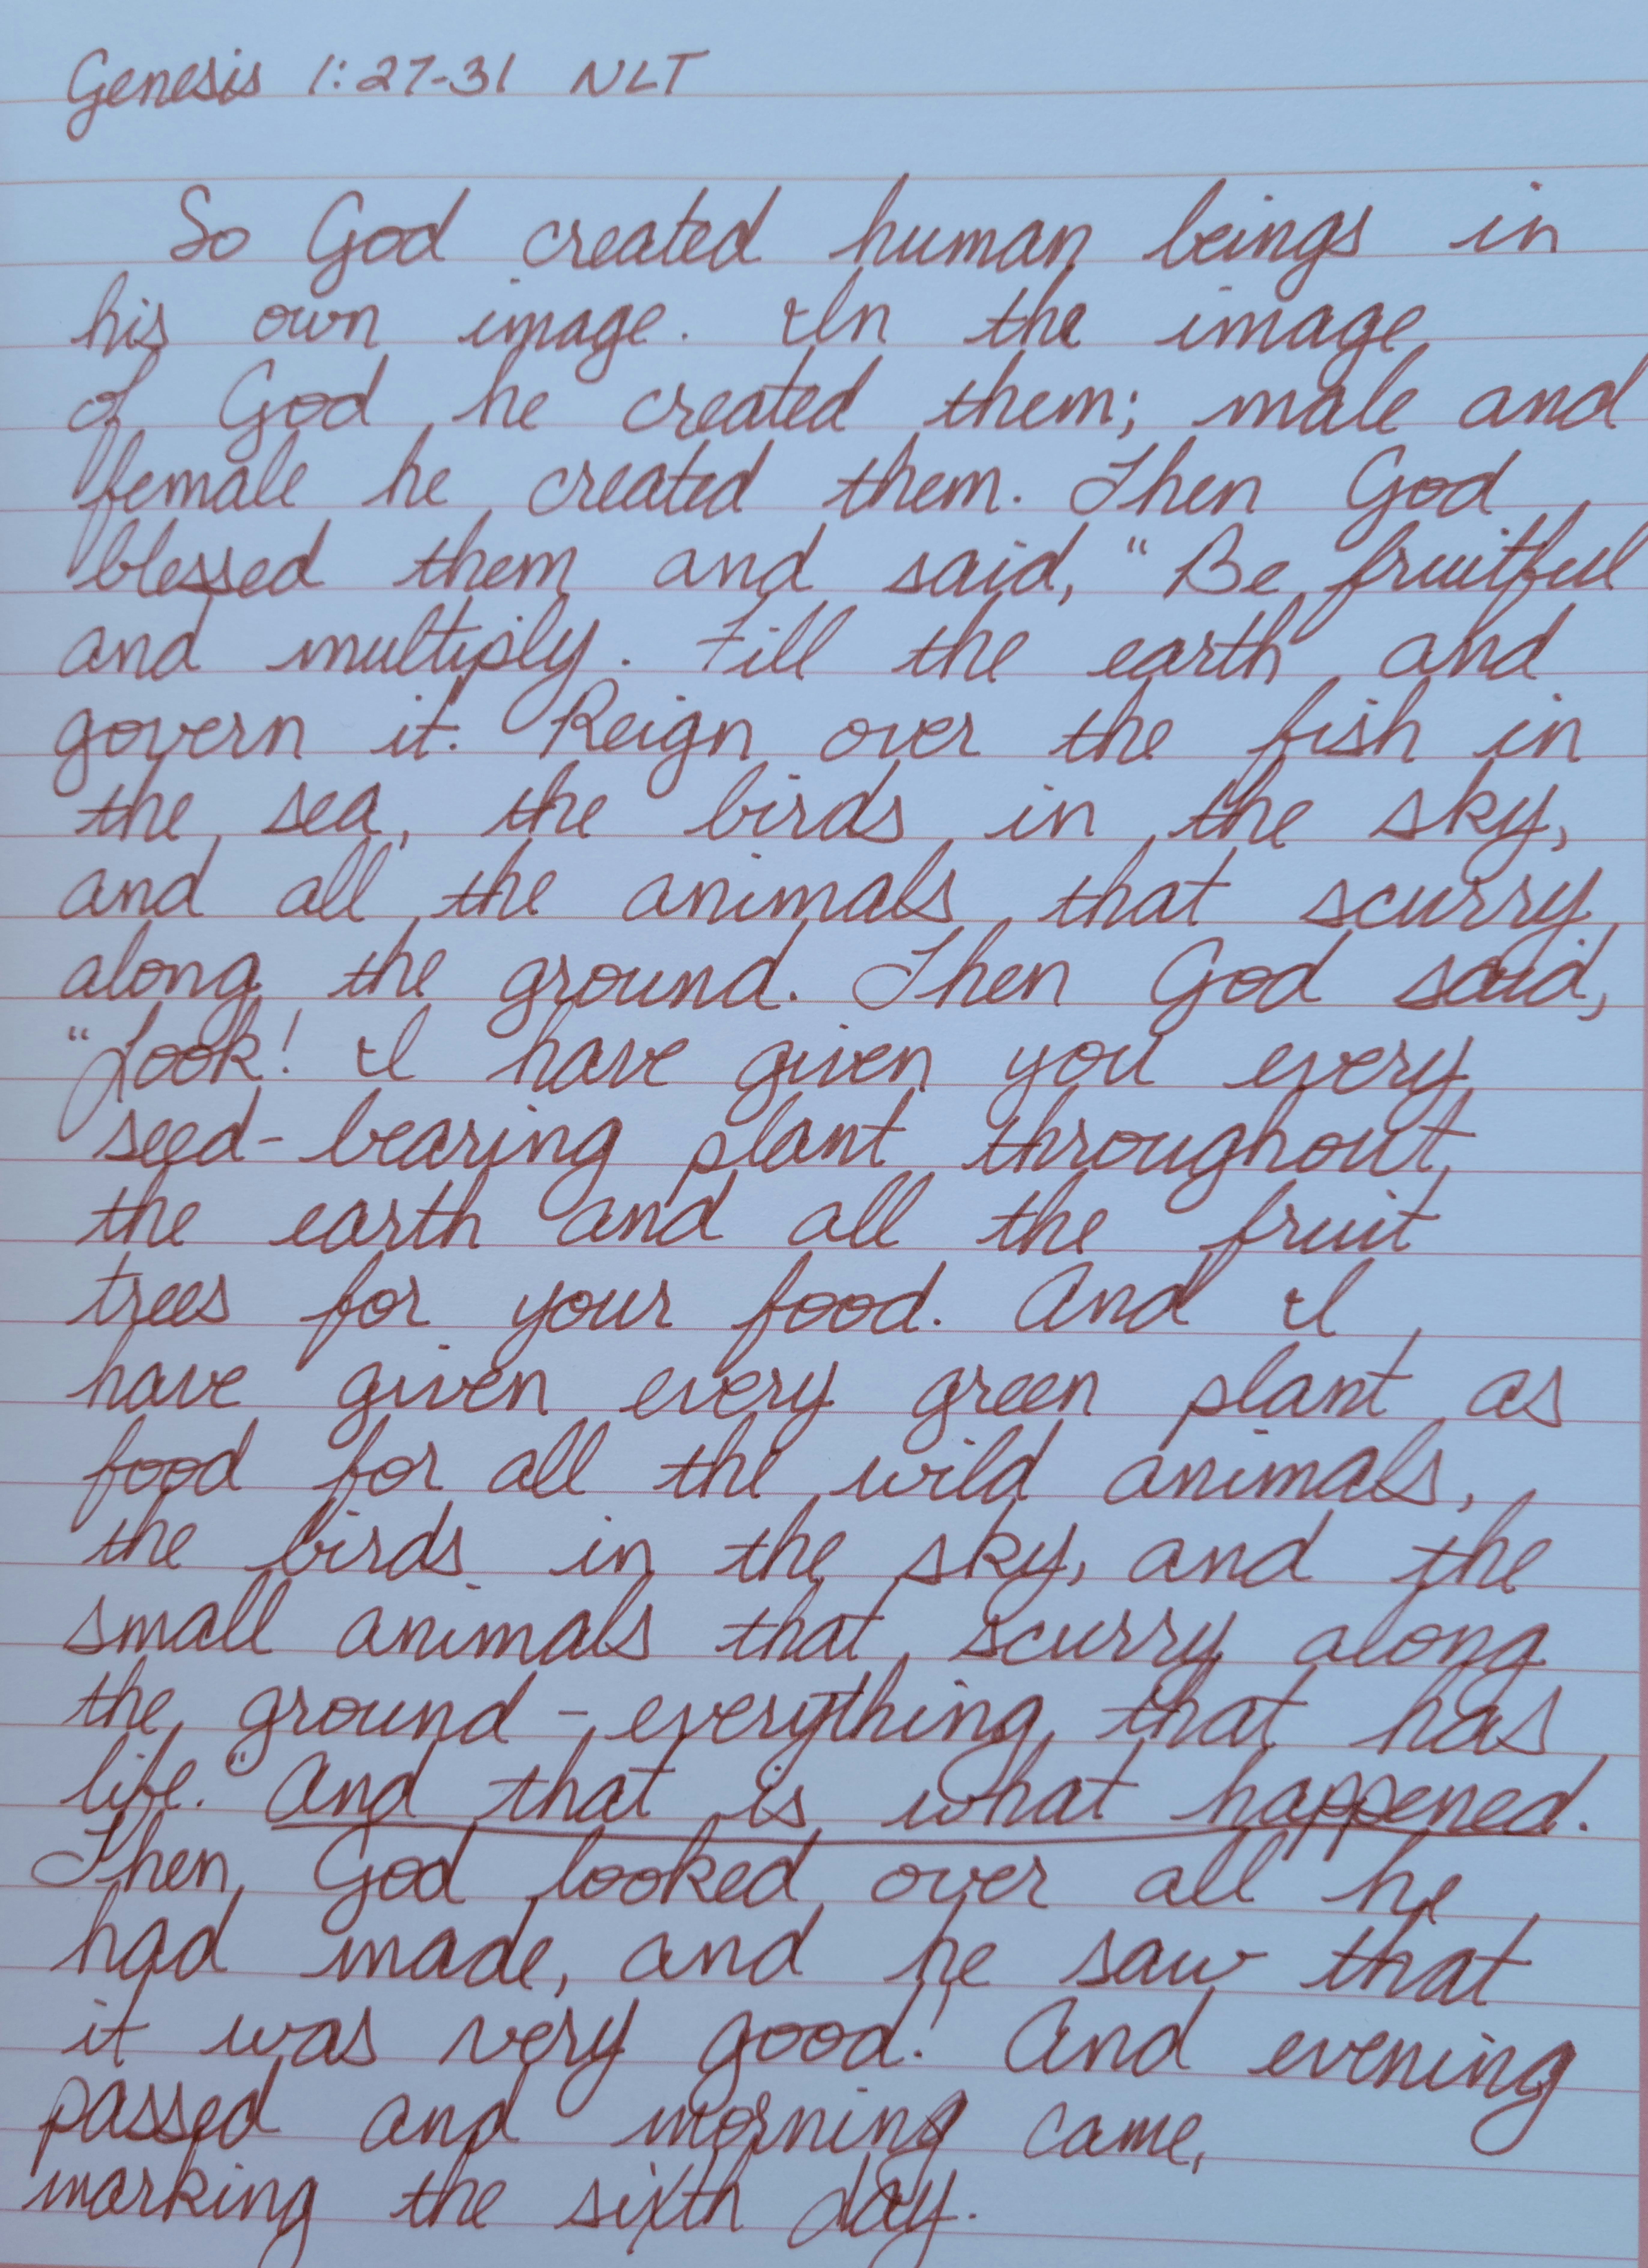 Genesis 1:27-31 NLT
So God created human beings in
his own image. In the image
of God he created them; male and
female he created them. Then God
blessed them and said, "Be fruitful
and multiply. Fill the earth and
govern it. Reign over the fish in
the sea, the birds in the sky,
and all the animals that scurry
along the ground. Then God said,
"Look! I have given you every
seed-bearing plant throughout
the earth and all the fruit
trees for your food. And I
have given every green plant as
food for all the wild animals,
the birds in the sky, and the
small animals that scurry along
the ground - everything that has
life." And that is what happened.
Then God looked over all he
had made, and he saw that
it was very good! And evening
passed and morning came,
marking the sixth day.